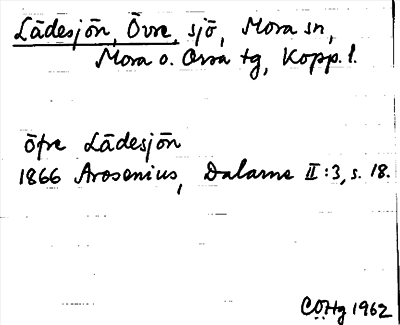 Lädesjön, Övre, sjö, Mora sn,
Mora o. Orsa tg, Kopp. l.
Öfre Lädesjön
1866 Arosenius, Dalarne II:3, s. 18.
COHg 1962